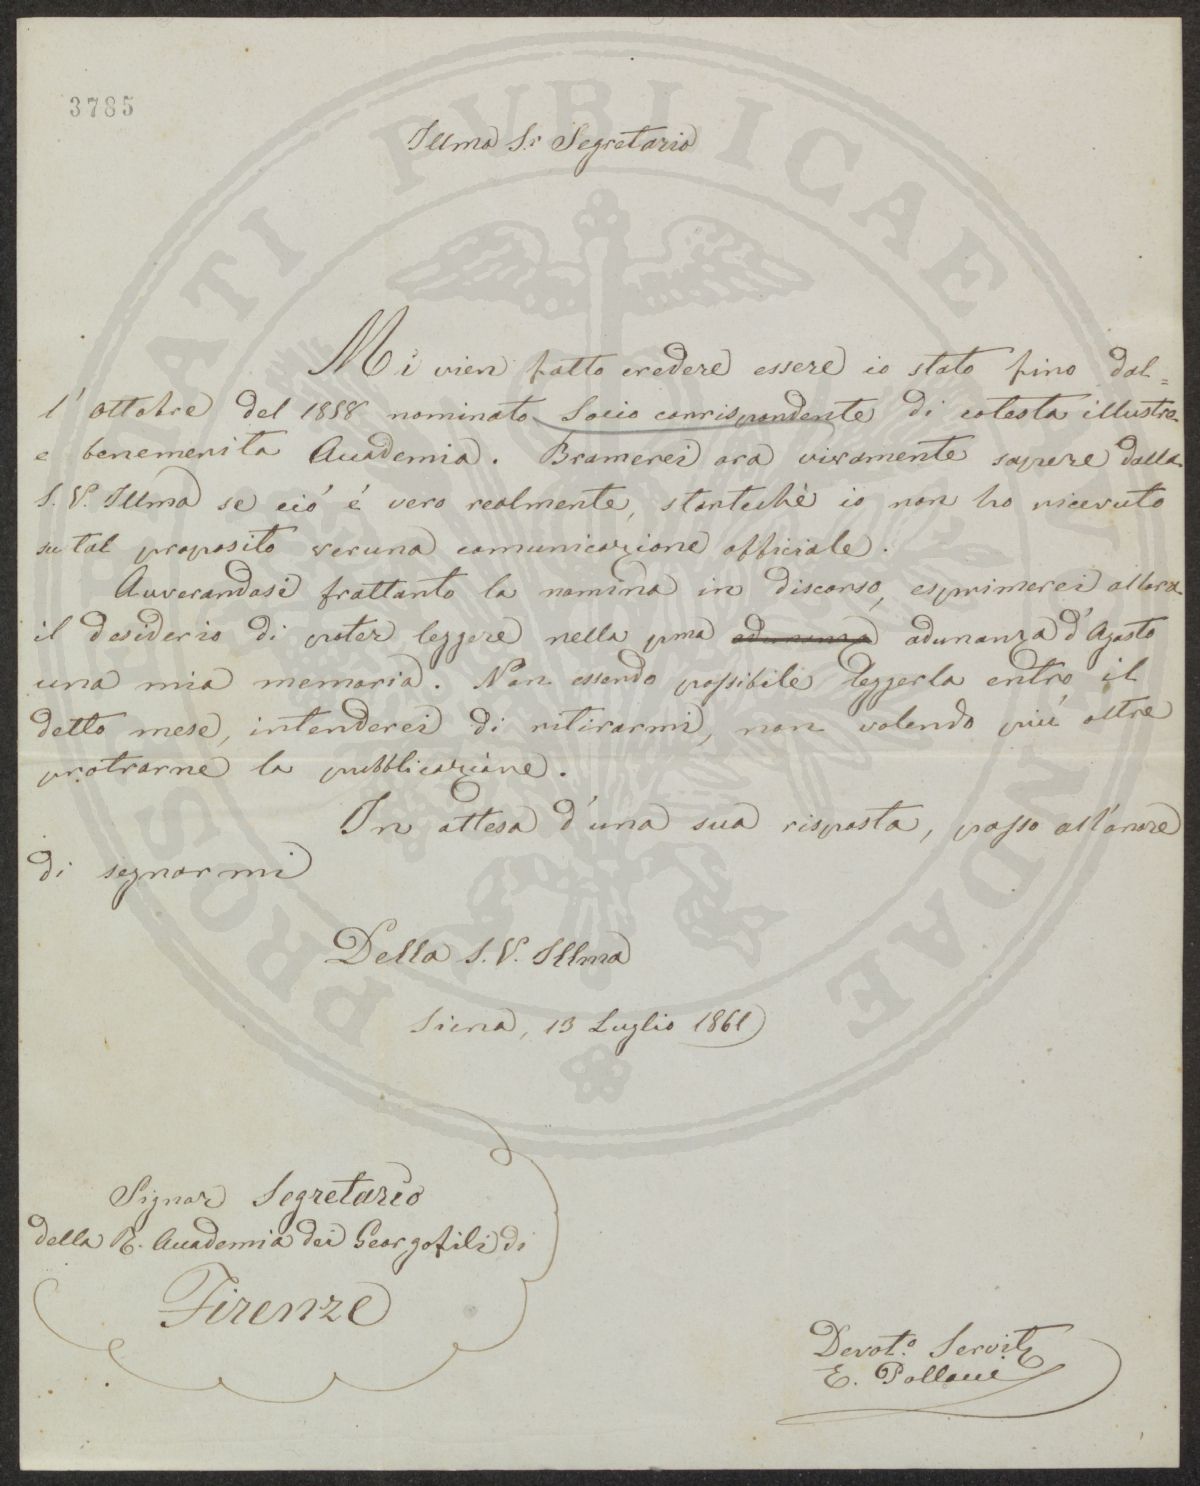 3785
Illmo Sr. Segretario
Mi vien fatto credere essere io stato fino dal=
l'ottobre del 1858 nominato Socio corrispondente di cotesta illustre
e benemerita Accademia. Bramerei ora vivamente sapere dalla
S. V. Illma se ciò è vero realmente, stantechè io non ho ricevuto
su tal proposito veruna comunicazione officiale.
Avverandosi frattanto la nomina in discorso, esprimerei allora
il desiderio di poter leggere nella pma adunanza adunanza d'Agosto
una mia memoria. Non essendo possibile leggerla entro il
detto mese, intenderei di ritirarmi, non volendo più oltre
protrarne la pubblicazione.
In attesa d'una sua risposta, passo all'onore
di segnarmi
Della S. V. Illma
Siena, 13 Luglio 1861
Signor Segretario
della R. Accademia dei Georgofili di
Firenze
Devot.o Servit
E. Pollacci
PROSPERITATI PUBLICAE AUGENDAE